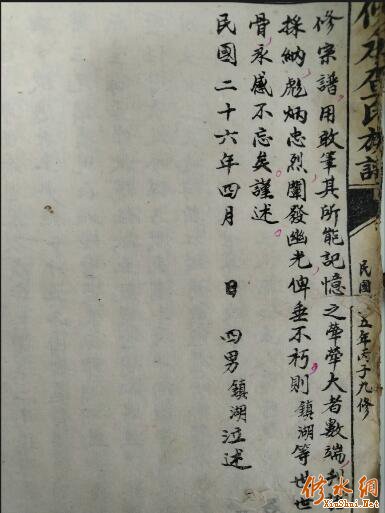 修水查氏族譜
民國 五年丙子九修
修宗譜用敢筆其所能記憶之犖犖大者數端
採納彪炳忠烈闡發幽光俾垂不朽則鎮湖等世世
骨永感不忘矣謹述
民國二十六年四月 日 四男鎮湖泣述
修水網
XiuShui.Net